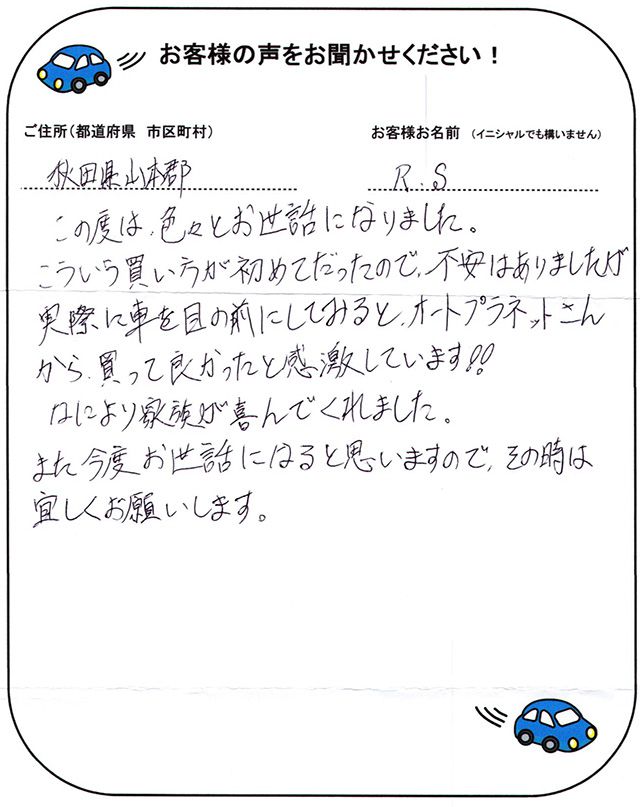 お客様の声をお聞かせください！
ご住所（都道府県 市区町村）
お客様お名前 （イニシャルでも構いません）
秋田県山本郡
R.S
この度は、色々とお世話になりました。
こういう買い方が初めてだったので、不安はありましたが
実際に車を目の前にしてみると、オートプラネットさん
から、買って良かったと感激しています!!
なにより家族が喜んでくれました。
また今度お世話になると思いますので、その時は
宜しくお願いします。